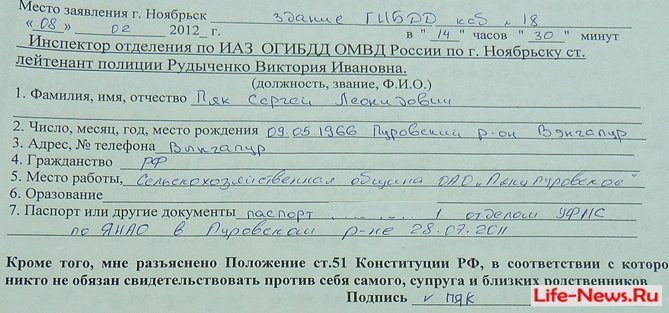 Место заявления г. Ноябрьск здание ГИБДД каб № 18
" 08 " 02 2012_ г. в " 14 " часов " 30 " минут
Инспектор отделения по ИАЗ ОГИБДД ОМВД России по г. Ноябрьску ст.
лейтенант полиции Рудыченко Виктория Ивановна.
(должность, звание, Ф.И.О.)
1. Фамилия, имя, отчество Пяк Сергей Леонидович
2. Число, месяц, год, место рождения 09.05.1966 Пуровский р-он Вэнгапур
3. Адрес, № телефона Вынгапур
4. Гражданство РФ
5. Место работы, Сельскохозяйственная община ОАО „Пякупуровское"
6. Оразование
7. Паспорт или другие документы паспорт отделом УФМС
по ЯНАО в Пуровском р-не 28.07.2011
Кроме того, мне разъяснено Положение ст.51 Конституции РФ, в соответствии с которо
никто не обязан свидетельствовать против себя самого, супруга и близких родственников
Подпись v пяк
Life-News.Ru